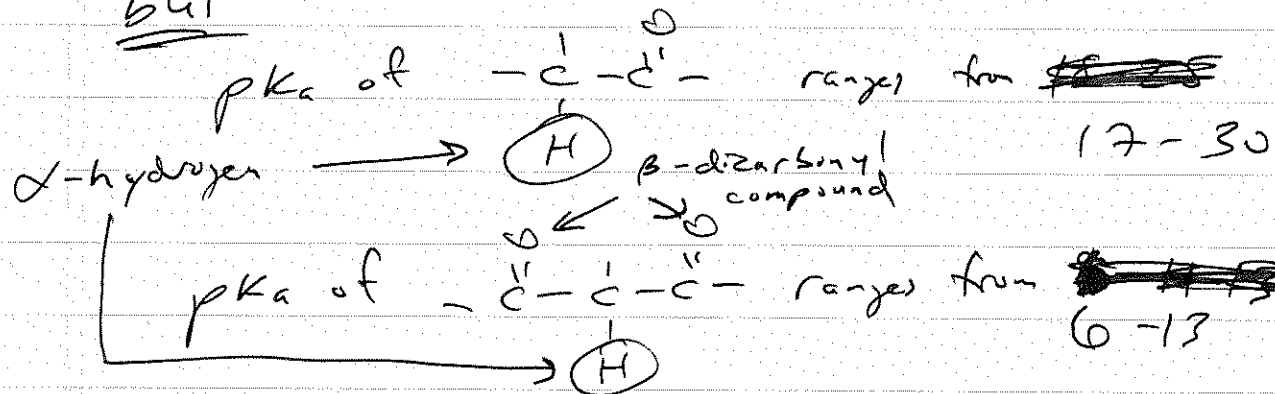 but
O
pKa of -C-C- ranges from
H
17-30
α-hydrogen
β-dicarbonyl
compound
O O
pKa of -C-C-C- ranges from
6-13
H